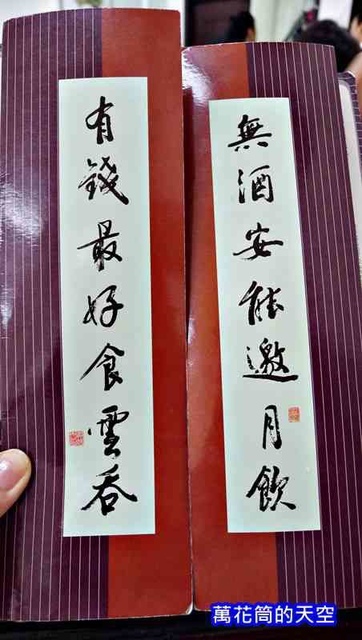 無酒安能邀月飲
有錢最好食雲吞
萬花筒的天空